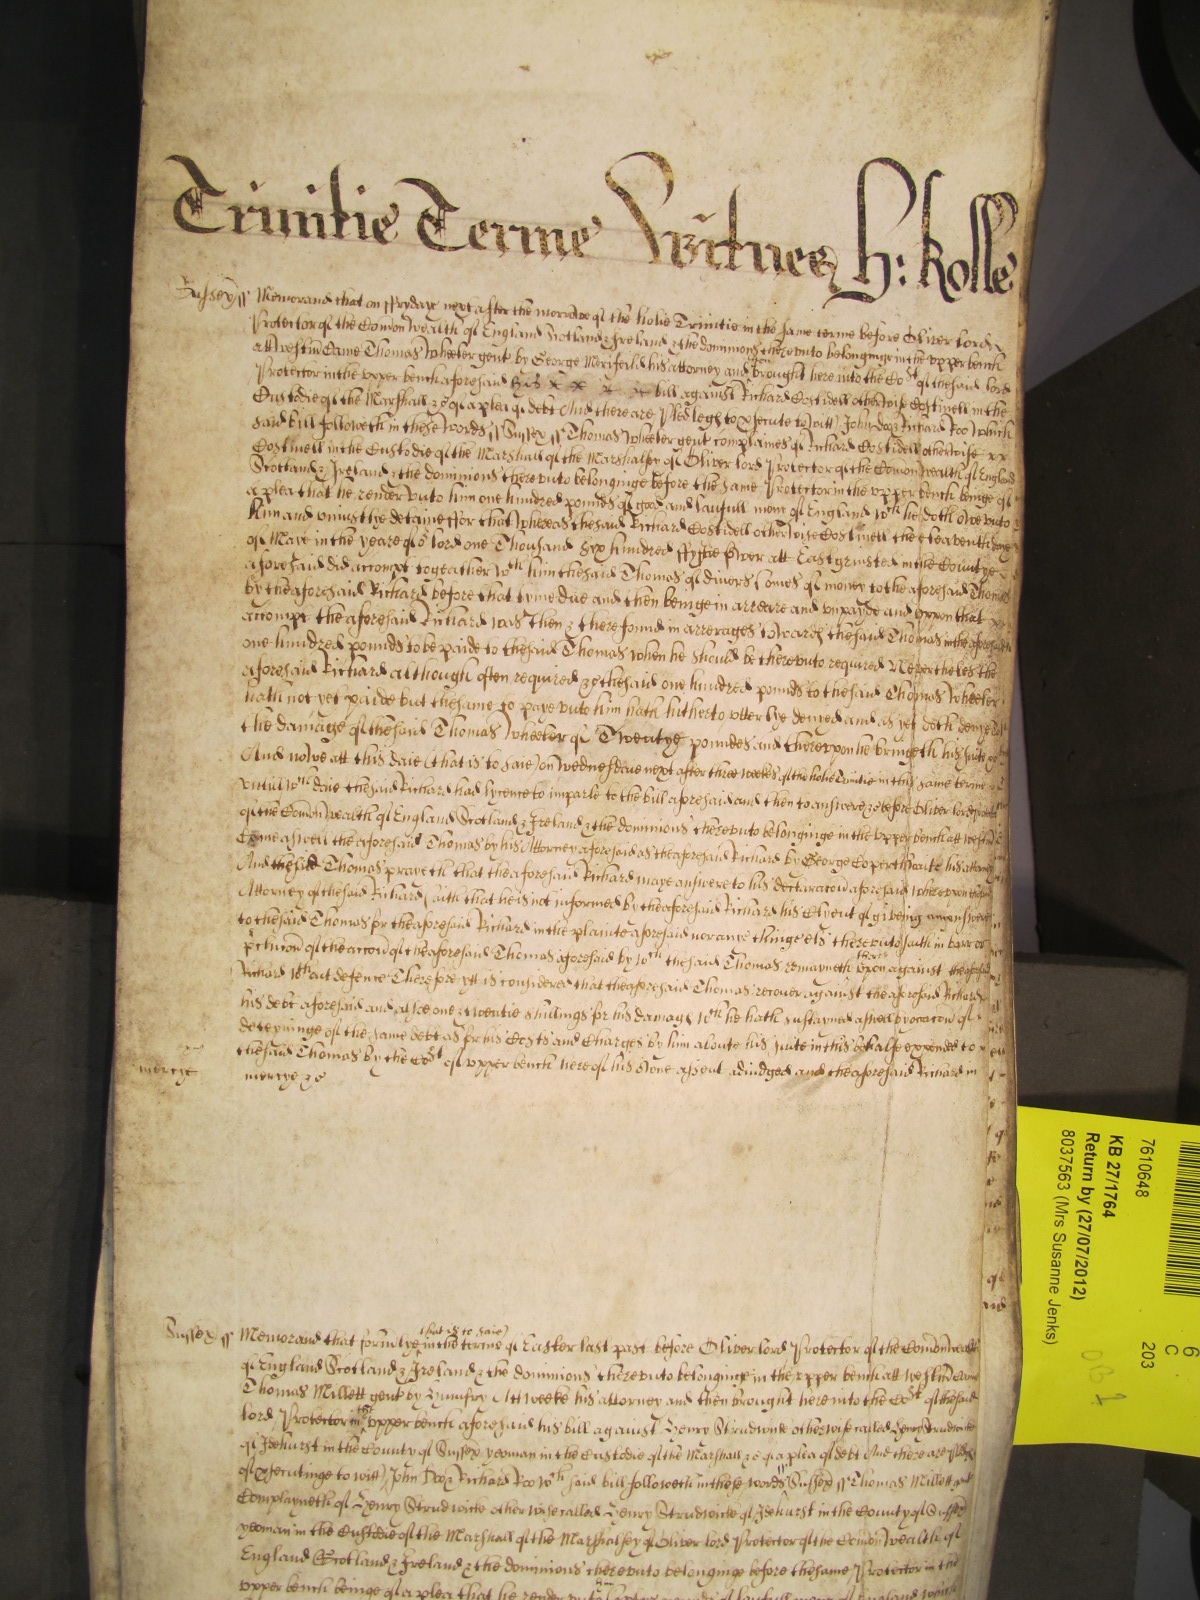 Trinitie Terme Witnes H: Rolle
Sussex ss Memorand that on ffrydaye next after the morrowe of the holie Trinitie in the same terme before Oliver lord
Protector of the Comonwealth of England Scotland & Ireland & the dominions thereunto belonginge in the upper bench
att Westm Came Thomas Wheeler gent by George Merifeild his attorney and brought here into the Cort of the said lord
Protector in the upper bench aforesaid his x x x x bill against Richard Costidell otherwise Costinell in the
Custodie of the Marshall &c of a plea of debt And there are Pledges to psecute to witt John Doo & Richard Roo Which
said bill followeth in these words ss Sussex ss Thomas Wheeler gent complaines of Richard Costidell otherwise xx
Costinell in the Custodie of the Marshall of the Marshalsey of Oliver lord Protector of the Comonwealth of England
Scotland & Ireland & the dominions thereunto belonginge before the same Protector in the upper bench beinge of
a plea that he render unto him one hundred pounds of good and laufull mony of England wch he doth owe unto
him and uniustlye detaine ffor that whereas the said Richard Costidell otherwise Costinell the eleaventh daye
of Maye in the yeare of or lord one Thousand Six hundred ffyftie ffower att Eastgrinsted in the Countye
aforesaid did accompt togeather wth him the said Thomas of divers somes of money to the aforesaid Thomas
by the aforesaid Richard before that tyme due and then beinge in arreare and unpayde and uppon that
accompt the aforesaid Richard was then & there found in arrerages towards the said Thomas in the aforesaid
one hundred pounds to be paide to the said Thomas when he should be thereunto required Nevertheles the
aforesaid Richard although often required &c the said one hundred pounds to the said Thomas Wheeler
hath not yet paide but the same to paye unto him hath hitherto utterlye denyed and as yet doth denye
the damage of the said Thomas Wheeler of Twentye poundes and thereupon he bringeth his suite &c
And nowe att this daie (that is to saie) on Wednesdaie next after three weekes of the holie Trinitie in this same terme
untill wch daie the said Richard had lycence to imparle to the bill aforesaid and then to answere &c before Oliver lord Protector
of the Comonwealth of England Scotland & Ireland & the dominions thereunto belonginge in the upper bench att Westm
Come aswell the aforesaid Thomas by his Attorney aforesaid as the aforesaid Richard by George Coperthwaite his attorney
And the said Thomas prayeth that the aforesaid Richard maye answere to his declaracon aforesaid Whereupon the
Attorney of the said Richard saith that he is not informed by the aforesaid Richard his Clyent of giveing any answere
to the said Thomas for the aforesaid Richard in the plainte aforesaid nor anye thinge els thereunto saith in barr or
of the accon of the aforesaid Thomas aforesaid by wch the said Thomas remayneth thereupon against the aforesaid
Richard without defence Therefore ytt is considered that the aforesaid Thomas recover against the aforesaid Richard
his debt aforesaid and allsoe one & twentie shillings for his damags wch he hath sustayned aswell by occacon of
deteyninge of the same debt as for his Costs and Charges by him about his suite in this behalfe expended to
the said Thomas by the Cort of upper bench here of his owne assent adiudged and the aforesaid Richard in
mercye mercye &c
Sussex ss Memorand that formlye that is to saie in the terme of Easter last past before Oliver lord Protector of the Comonwealth
of England Scotland & Ireland & the dominions thereunto belonginge in the upper bench att Westm Came
Thomas Millett gent by Humfry Attweeke his attorney and then brought here into the Cort of the said
lord Protector in the upper bench aforesaid his bill against Henry Strudwicke otherwise called Henry Strudwicke
of Idehurst in the County of Sussex yeoman in the Custodie of the Marshall &c of a plea of debt And there are pledges
of psecutinge to witt John Doo & Richard Roo wch said bill followeth in these words ss Sussex ss Thomas Millett gent
Complayneth of Henry Strudwicke otherwise called Henry Strudwicke of Idehurst in the County of Sussex
yeoman in the Custodie of the Marshall of the Marshalsey of Oliver lord Protector of the Comonwealth of
England Scotland & Ireland & the dominions thereunto belonginge before the same Protector in the
upper bench beinge of a plea that he render unto him of laufull mony of England which
7610648
KB 27/1764
Return by (27/07/2012)
8037563 (Mrs Susanne Jenks)
6
C
203